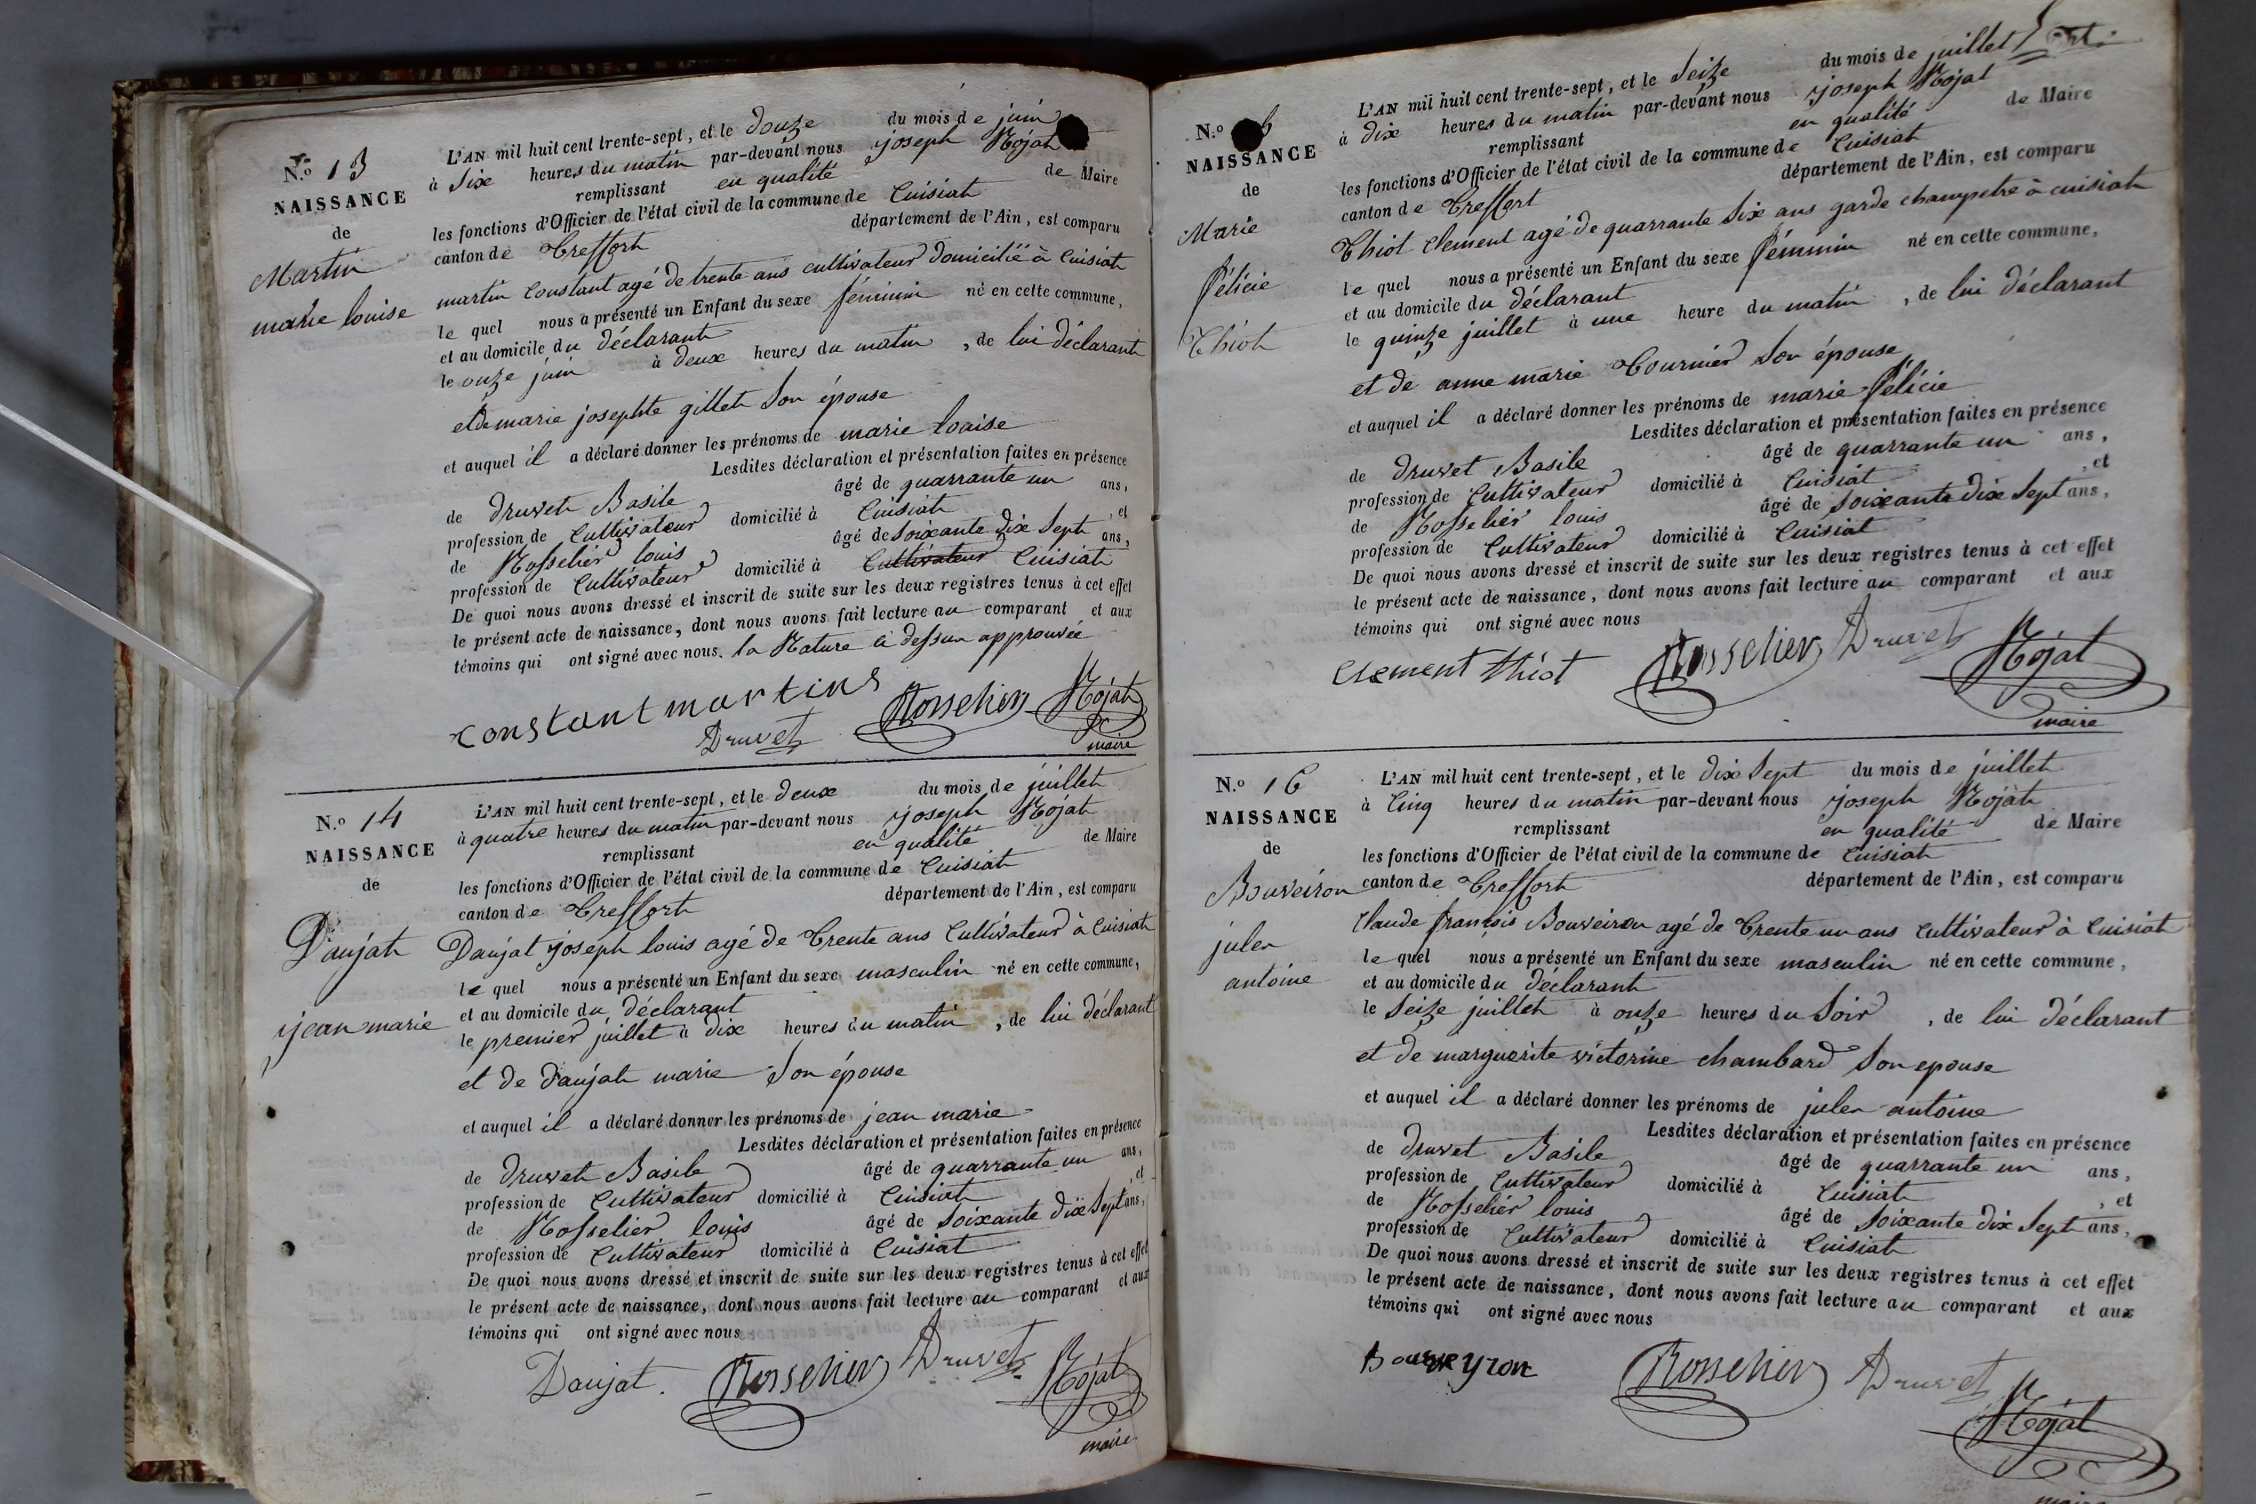 N.º 13
NAISSANCE
de
Martin
marie louise
L'AN mil huit cent trente-sept, et le douze du mois de juin
à Six heures du matin par-devant nous joseph Rojat
remplissant en qualité de Maire
les fonctions d'Officier de l'état civil de la commune de Cuisiat
canton de Treffort département de l'Ain, est comparu
martin Constant agé de trente ans cultivateur domicilié à Cuisiat
le quel nous a présenté un Enfant du sexe féminin né en cette commune,
et au domicile du déclarant
le onze juin à deux heures du matin, de lui déclarant
et de marie josephte gillet Son épouse
et auquel il a déclaré donner les prénoms de marie louise
Lesdites déclaration et présentation faites en présence
de druvet Basile âgé de quarrante un ans,
profession de Cultivateur domicilié à Cuisiat, et
de Rosselier louis âgé de Soixante dix Sept ans,
profession de Cultivateur domicilié à Cultivateur Cuisiat
De quoi nous avons dressé et inscrit de suite sur les deux registres tenus à cet effet
le présent acte de naissance, dont nous avons fait lecture au comparant et aux
témoins qui ont signé avec nous. la Rature ci dessus approuvée
constant martins
Druvet Rosselier Rojat
maire
N.º 14
NAISSANCE
de
Daujat
jean marie
L'AN mil huit cent trente-sept, et le deux du mois de juillet
à quatre heures du matin par-devant nous joseph Rojat
remplissant en qualité de Maire
les fonctions d'Officier de l'état civil de la commune de Cuisiat
canton de Treffort département de l'Ain, est comparu
Daujat joseph louis agé de Trente ans Cultivateur à Cuisiat
le quel nous a présenté un Enfant du sexe masculin né en cette commune,
et au domicile du déclarant
le premier juillet à dix heures du matin, de lui déclarant
et de Daujat marie Son épouse
et auquel il a déclaré donner les prénoms de jean marie
Lesdites déclaration et présentation faites en présence
de druvet Basile âgé de quarrante un ans,
profession de Cultivateur domicilié à Cuisiat, et
de Rosselier louis âgé de Soixante dix Sept ans,
profession de Cultivateur domicilié à Cuisiat
De quoi nous avons dressé et inscrit de suite sur les deux registres tenus à cet effet
le présent acte de naissance, dont nous avons fait lecture au comparant et aux
témoins qui ont signé avec nous
Daujat. Rosselier Druvet Rojat
maire
N.º
NAISSANCE
de
Marie
félicie
Thiot
L'AN mil huit cent trente-sept, et le Seize du mois de juillet
à dix heures du matin par-devant nous joseph Rojat
remplissant en qualité de Maire
les fonctions d'Officier de l'état civil de la commune de Cuisiat
canton de Treffort département de l'Ain, est comparu
Thiot Clement agé de quarrante Six ans garde champetre à cuisiat
le quel nous a présenté un Enfant du sexe féminin né en cette commune,
et au domicile du déclarant
le quinze juillet à une heure du matin, de lui déclarant
et de anne marie Tournier Son épouse
et auquel il a déclaré donner les prénoms de marie félicie
Lesdites déclaration et présentation faites en présence
de druvet Basile âgé de quarrante un ans,
profession de Cultivateur domicilié à Cuisiat, et
de Rosselier louis âgé de Soixante dix Sept ans,
profession de Cultivateur domicilié à Cuisiat
De quoi nous avons dressé et inscrit de suite sur les deux registres tenus à cet effet
le présent acte de naissance, dont nous avons fait lecture au comparant et aux
témoins qui ont signé avec nous
Clement thiot Rosselier Druvet Rojat
maire
N.º 16
NAISSANCE
de
Bouveiron
jules
antoine
L'AN mil huit cent trente-sept, et le dix Sept du mois de juillet
à Cinq heures du matin par-devant nous joseph Rojat
remplissant en qualité de Maire
les fonctions d'Officier de l'état civil de la commune de Cuisiat
canton de Treffort département de l'Ain, est comparu
Claude françois Bouveiron agé de Trente un ans Cultivateur à Cuisiat
le quel nous a présenté un Enfant du sexe masculin né en cette commune,
et au domicile du déclarant
le Seize juillet à onze heures du Soir, de lui déclarant
et de marguerite victorine chambard Son epouse
et auquel il a déclaré donner les prénoms de jules antoine
Lesdites déclaration et présentation faites en présence
de druvet Basile âgé de quarrante un ans,
profession de Cultivateur domicilié à Cuisiat, et
de Rosselier louis âgé de Soixante dix Sept ans,
profession de Cultivateur domicilié à Cuisiat
De quoi nous avons dressé et inscrit de suite sur les deux registres tenus à cet effet
le présent acte de naissance, dont nous avons fait lecture au comparant et aux
témoins qui ont signé avec nous
Bouveyron Rosselier Druvet Rojat
maire